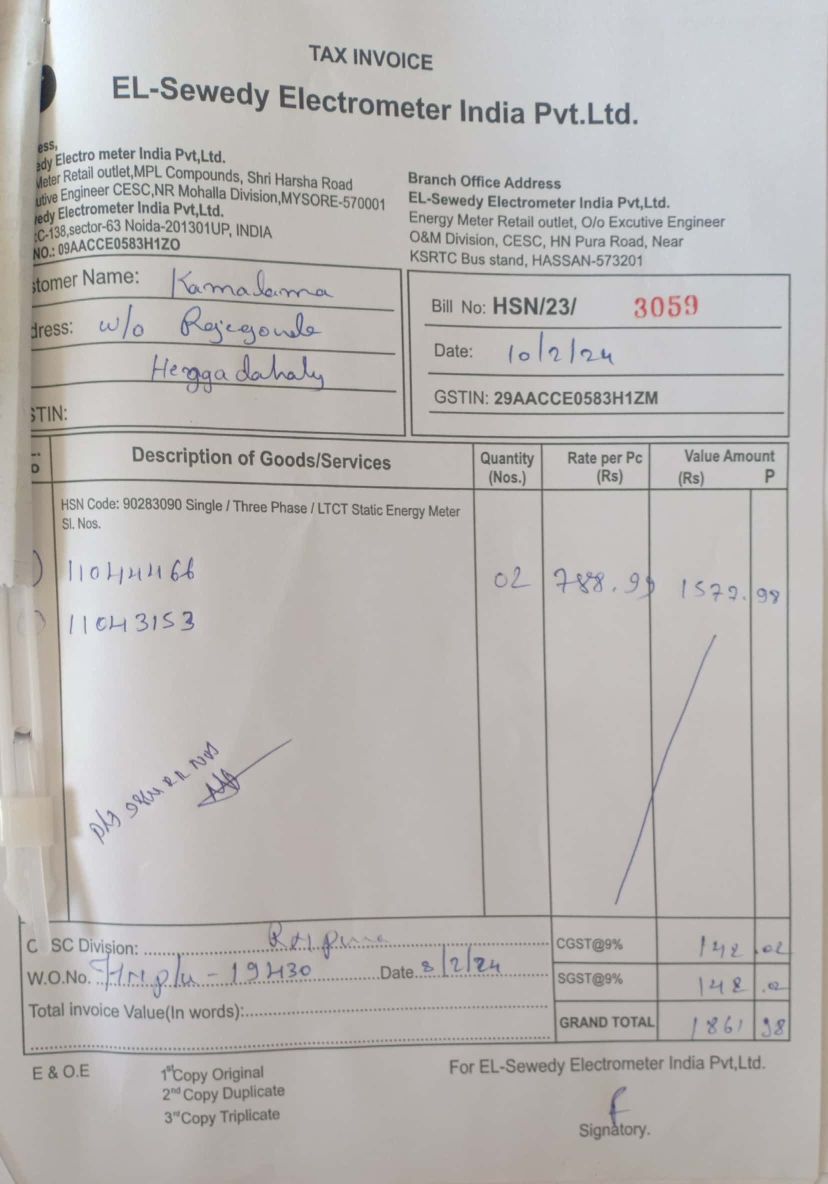 TAX INVOICE
EL-Sewedy Electrometer India Pvt.Ltd.
ess,
edy Electro meter India Pvt,Ltd.
Meter Retail outlet,MPL Compounds, Shri Harsha Road
utive Engineer CESC,NR Mohalla Division,MYSORE-570001
edy Electrometer India Pvt,Ltd.
:C-138,sector-63 Noida-201301UP, INDIA
NO.: 09AACCE0583H1ZO
Branch Office Address
EL-Sewedy Electrometer India Pvt,Ltd.
Energy Meter Retail outlet, O/o Excutive Engineer
O&M Division, CESC, HN Pura Road, Near
KSRTC Bus stand, HASSAN-573201
stomer Name: Kamalama
dress: w/o Rajegowda
Heggadahaly
STIN:
Bill No: HSN/23/ 3059
Date: 10/2/24
GSTIN: 29AACCE0583H1ZM
Description of Goods/Services Quantity (Nos.) Rate per Pc (Rs) Value Amount (Rs) P
HSN Code: 90283090 Single / Three Phase / LTCT Static Energy Meter
Sl. Nos.
11044466 02 788.99 1577.98
11043153
C SC Division:
W.O.No. 19430 Date 8/2/24
Total invoice Value(In words):
CGST@9% 142.02
SGST@9% 142.0
GRAND TOTAL 1861 98
E & O.E
1st Copy Original
2nd Copy Duplicate
3rd Copy Triplicate
For EL-Sewedy Electrometer India Pvt,Ltd.
Signatory.